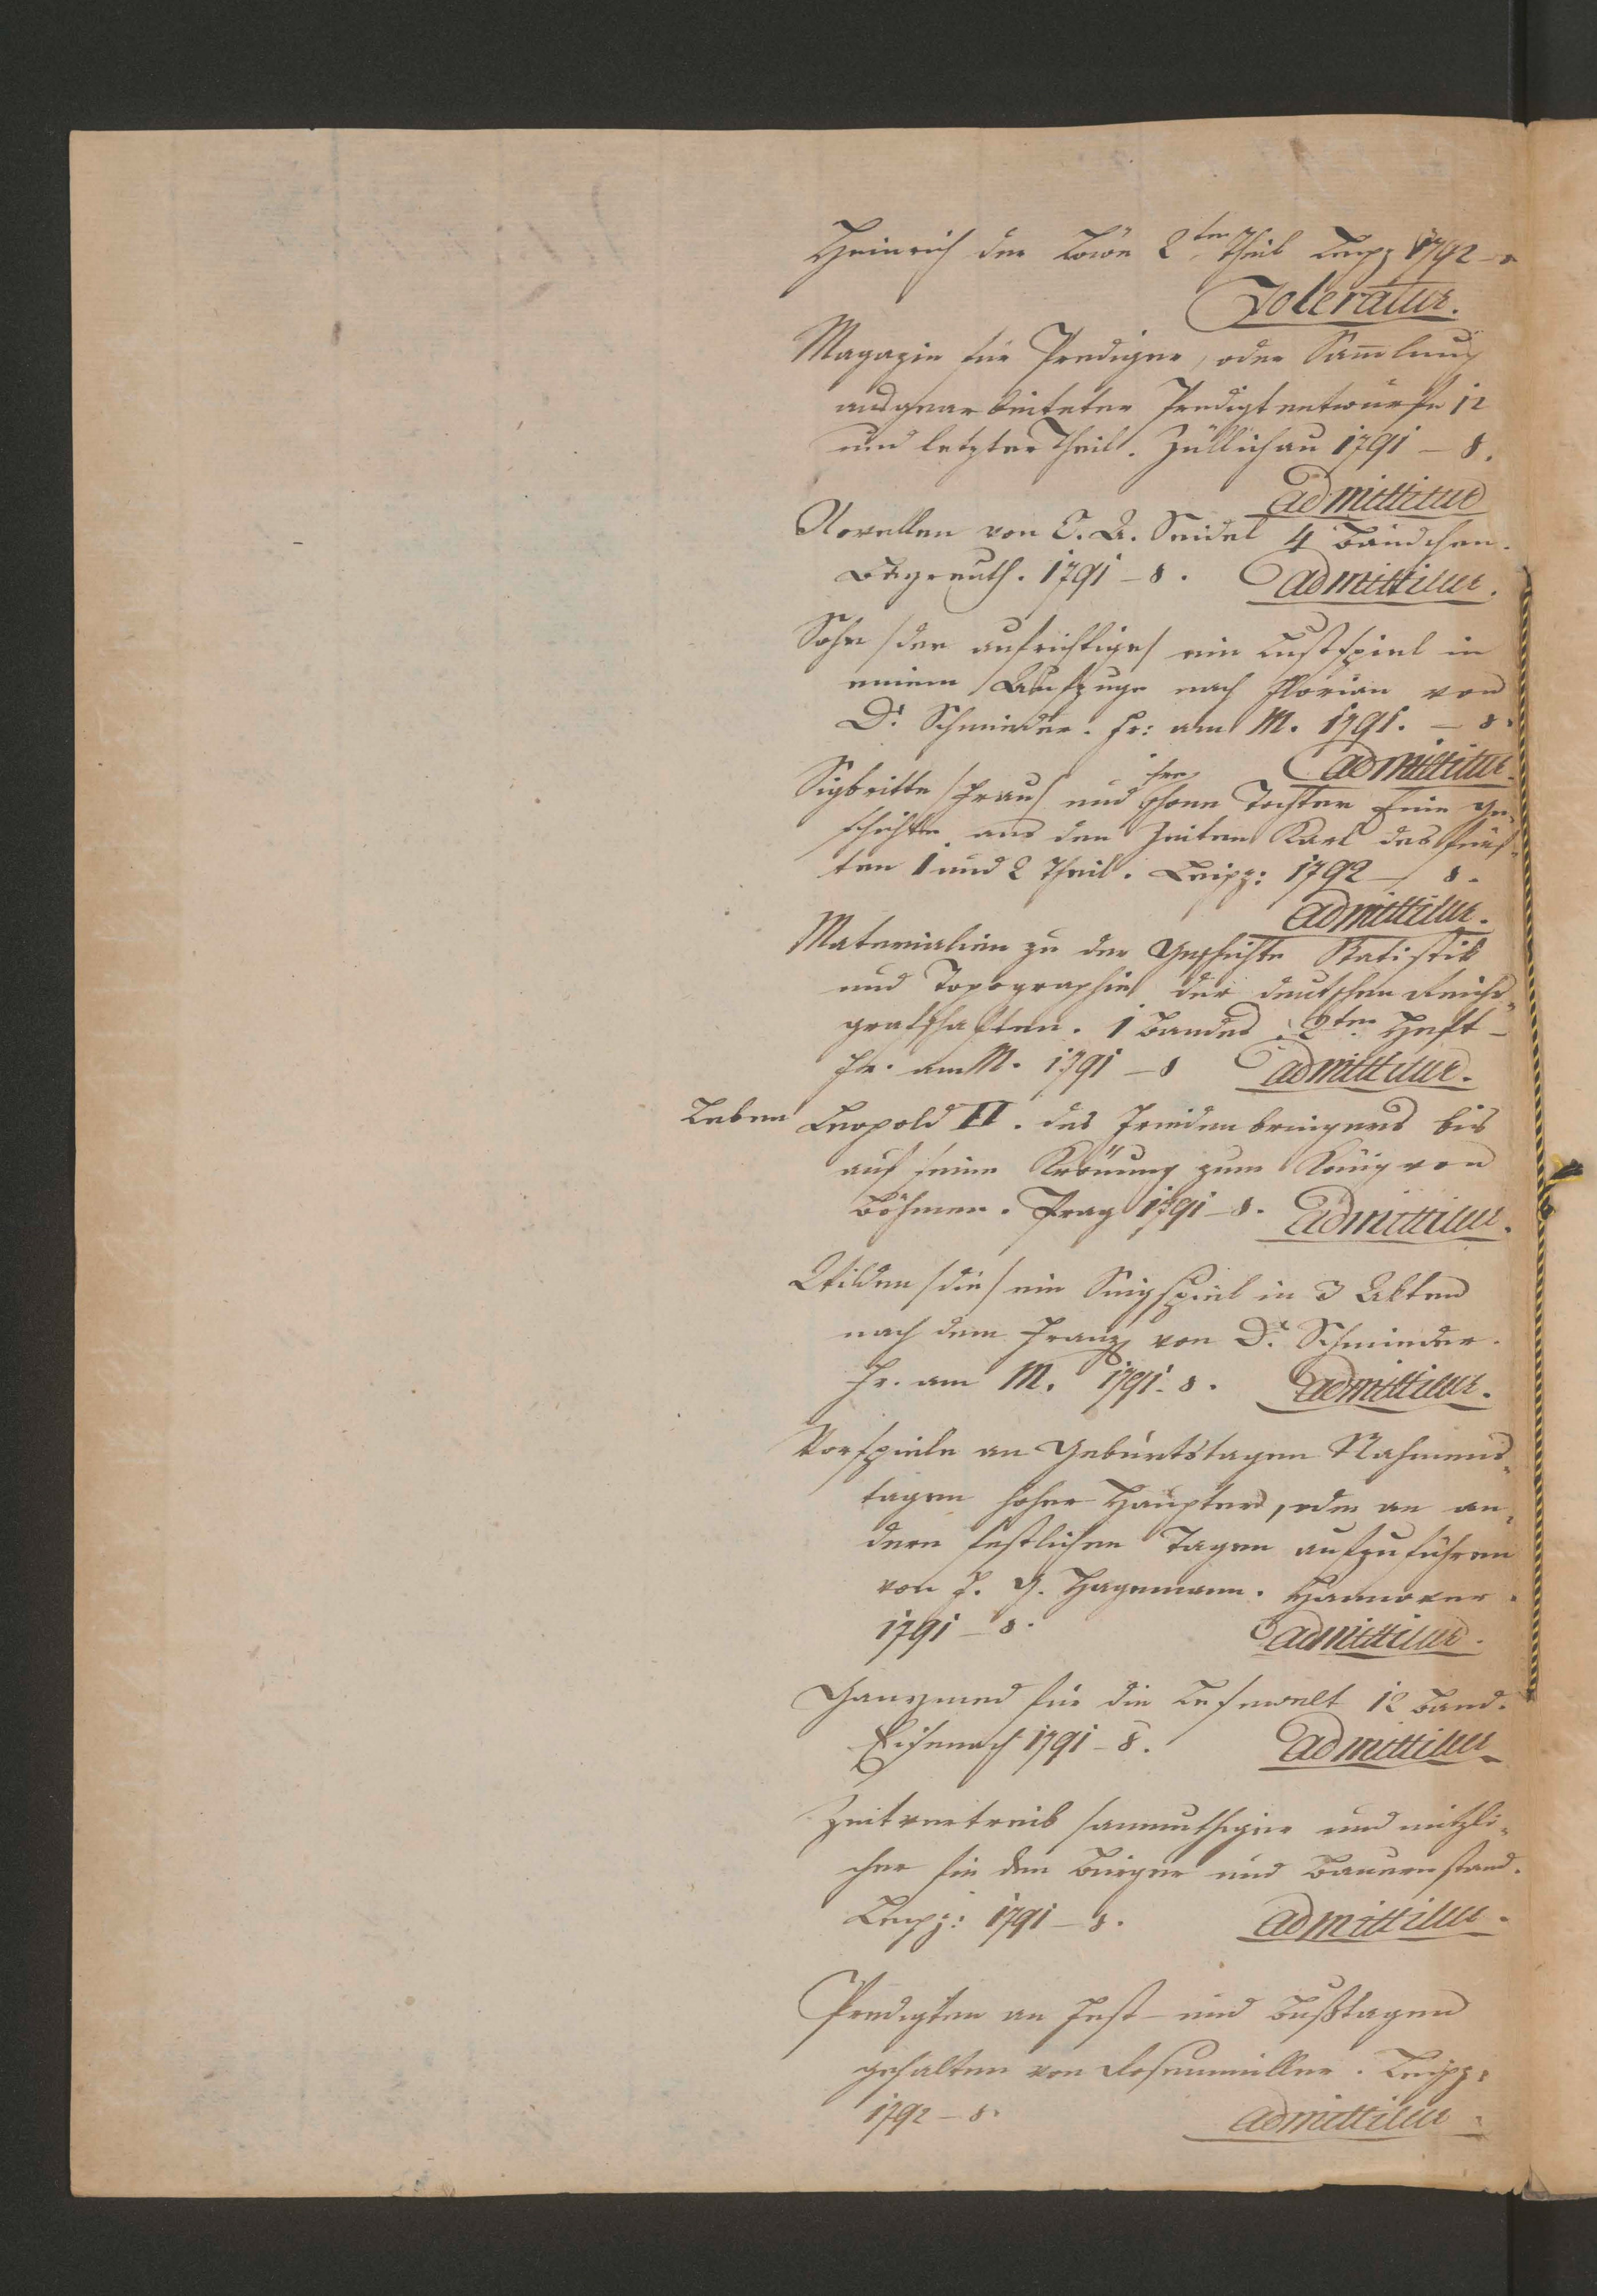 Heinrich der Löwe 2ter Theil Leipz 1792 –
Toleratur.
Magazin für Prediger, oder Sammlung
ausgearbeiteter Predigtentwürfe 12
und letzter Theil. Züllichau 1791 – 8.
admittitur
Novellen von C. A. Seidel 4 Bändchen.
Bayreuth. 1791 – 8. admittitur.
Sohn /der aufrichtige/ ein Lustspiel in
einem Aufzuge nach Florian von
Dr. Schmieder. Fr: am M. 1791. – 8.
admittitur.
Sigbritte /Frau/ und ihre schöne Tochter Eine Ge-
schichte aus den Zeiten Karl des fünf-
ten 1 und 2 Theil. Leipz: 1792 – 8.
admittitur.
Materialien zu der Geschichte Statistik
und Topographie der deutschen Reichs-
grafschaften. 1 Bandes 2ten Heft –
Fr. am M. 1791 – 8 admittitur.
Leben Leopold II. des Friedenbringers bis
auf seine Krönung zum König von
Böhmen. Prag 1791 – 8. admittitur.
Wilden /die/ ein Singspiel in 3 Akten
nach dem Franz von Dr. Schmieder.
Fr. am M. 1791. 8. admittitur.
Vorspiele an Geburtstagen Nahmens-
tagen hoher Häupter, oder an an-
dern festlichen Tagen aufzuführen
von F. G. Hagemann. Hannover.
1791 – 8. admittitur.
Ganymed für die Lesewelt 12 Band.
Eisenach 1791 – 8. admittitur
Zeitvertreib /anmuthiger und nützli-
cher für den Bürger und Bauernstand.
Leipz: 1791 – 8. admittitur.
Predigten an Fest – und Bußtagen
gehalten von Rosenmüller. Leipz:
1792 – 8. admittitur.